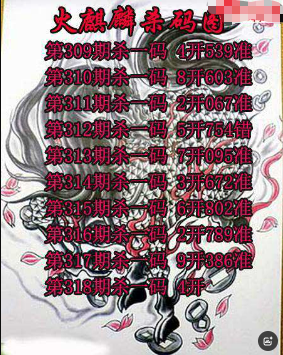 火麒麟杀码图
第309期杀一码 4开539准
第310期杀一码 8开603准
第311期杀一码 2开067准
第312期杀一码 5开754错
第313期杀一码 7开095准
第314期杀一码 3开672准
第315期杀一码 6开802准
第316期杀一码 2开789准
第317期杀一码 9开386准
第318期杀一码 1开